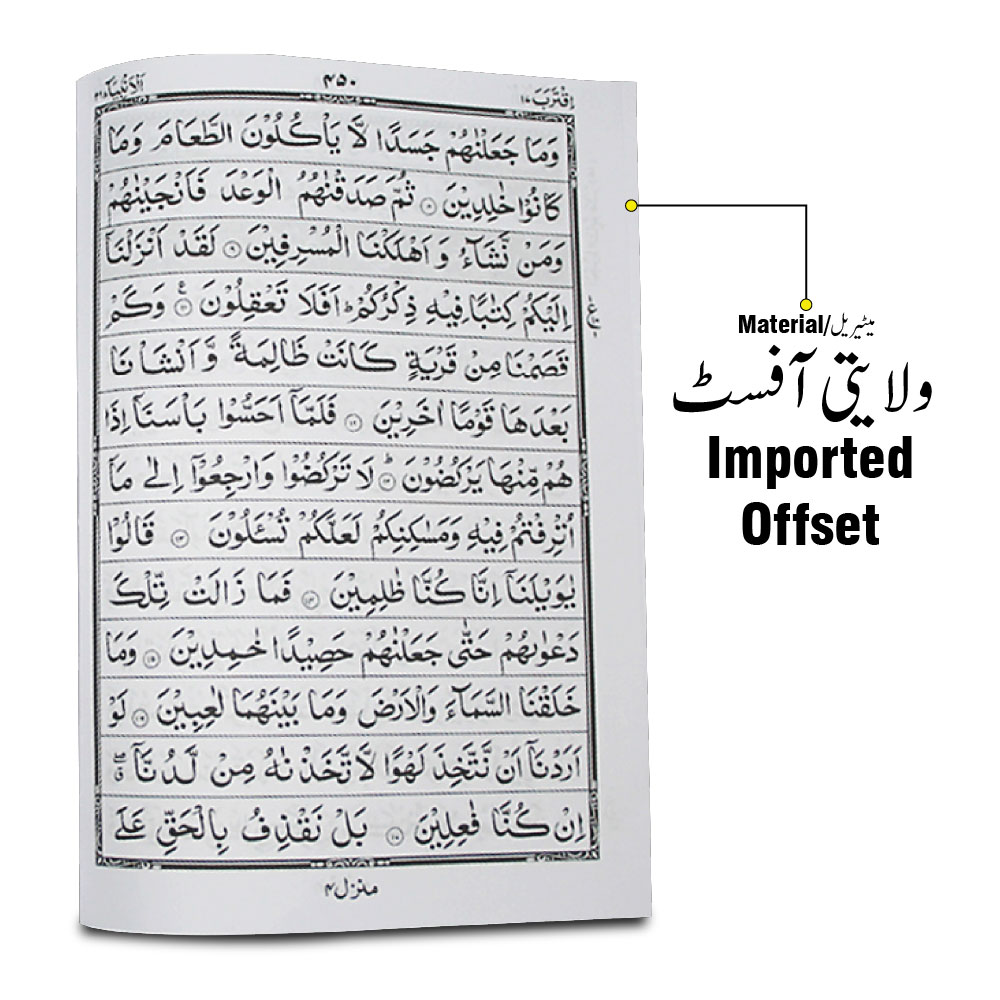 اِقْتَرَبَ ١٧ ۴۵۰ اَلْاَنْبِيَآء ٢١
وَمَا جَعَلْنٰهُمْ جَسَدًا لَّا يَاْكُلُوْنَ الطَّعَامَ وَمَا
كَانُوْا خٰلِدِيْنَ ۝٨ ثُمَّ صَدَقْنٰهُمُ الْوَعْدَ فَاَنْجَيْنٰهُمْ
وَمَنْ نَّشَآءُ وَ اَهْلَكْنَا الْمُسْرِفِيْنَ ۝٩ لَقَدْ اَنْزَلْنَآ
اِلَيْكُمْ كِتٰبًا فِيْهِ ذِكْرُكُمْ ؕ اَفَلَا تَعْقِلُوْنَ ۝١٠ وَكَمْ
قَصَمْنَا مِنْ قَرْيَةٍ كَانَتْ ظَالِمَةً وَّ اَنْشَاْنَا
بَعْدَهَا قَوْمًا اٰخَرِيْنَ ۝١١ فَلَمَّآ اَحَسُّوْا بَاْسَنَآ اِذَا
هُمْ مِّنْهَا يَرْكُضُوْنَ ۝١٢ لَا تَرْكُضُوْا وَارْجِعُوْٓا اِلٰى مَآ
اُتْرِفْتُمْ فِيْهِ وَمَسٰكِنِكُمْ لَعَلَّكُمْ تُسْـَٔلُوْنَ ۝١٣ قَالُوْا
يٰوَيْلَنَآ اِنَّا كُنَّا ظٰلِمِيْنَ ۝١٤ فَمَا زَالَتْ تِّلْكَ
دَعْوٰىهُمْ حَتّٰى جَعَلْنٰهُمْ حَصِيْدًا خٰمِدِيْنَ ۝١٥ وَمَا
خَلَقْنَا السَّمَآءَ وَالْاَرْضَ وَمَا بَيْنَهُمَا لٰعِبِيْنَ ۝١٦ لَوْ
اَرَدْنَآ اَنْ نَّتَّخِذَ لَهْوًا لَّا تَّخَذْنٰهُ مِنْ لَّدُنَّآ ۖق
اِنْ كُنَّا فٰعِلِيْنَ ۝١٧ بَلْ نَقْذِفُ بِالْحَقِّ عَلَى
منزل ۴
Material/میٹیریل
ولایتی آفسٹ
Imported
Offset